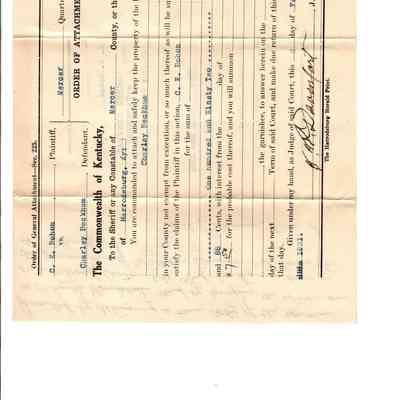 Order of General Attachment—Sec. 225.
Mercer Quart
C. E. Bohon Plaintiff,
vs. ORDER OF ATTACHMEN
Charley Beckham Defendant.
The Commonwealth of Kentucky,
To the Sheriff or any Constable of Mercer County, or th
of Harrodsburg, Ky:
You are commanded to attach and safely keep the property of the
Charley Beckham
in your County not exempt from execution, or so much thereof as will be su
satisfy the claims of the Plaintiff in this action, C. E. Bohon
for the sum of
One Hundred and Ninety Two
and 66 Cents, with interest from the day of
$ 7.50 for the probable cost thereof, and you will summon
the garnishee, to answer herein on the
day of the next Term of said Court, and make due return of this
that day.
Given under my hand, as Judge of said Court, this day of
J.
The Harrodsburg Herald Print.